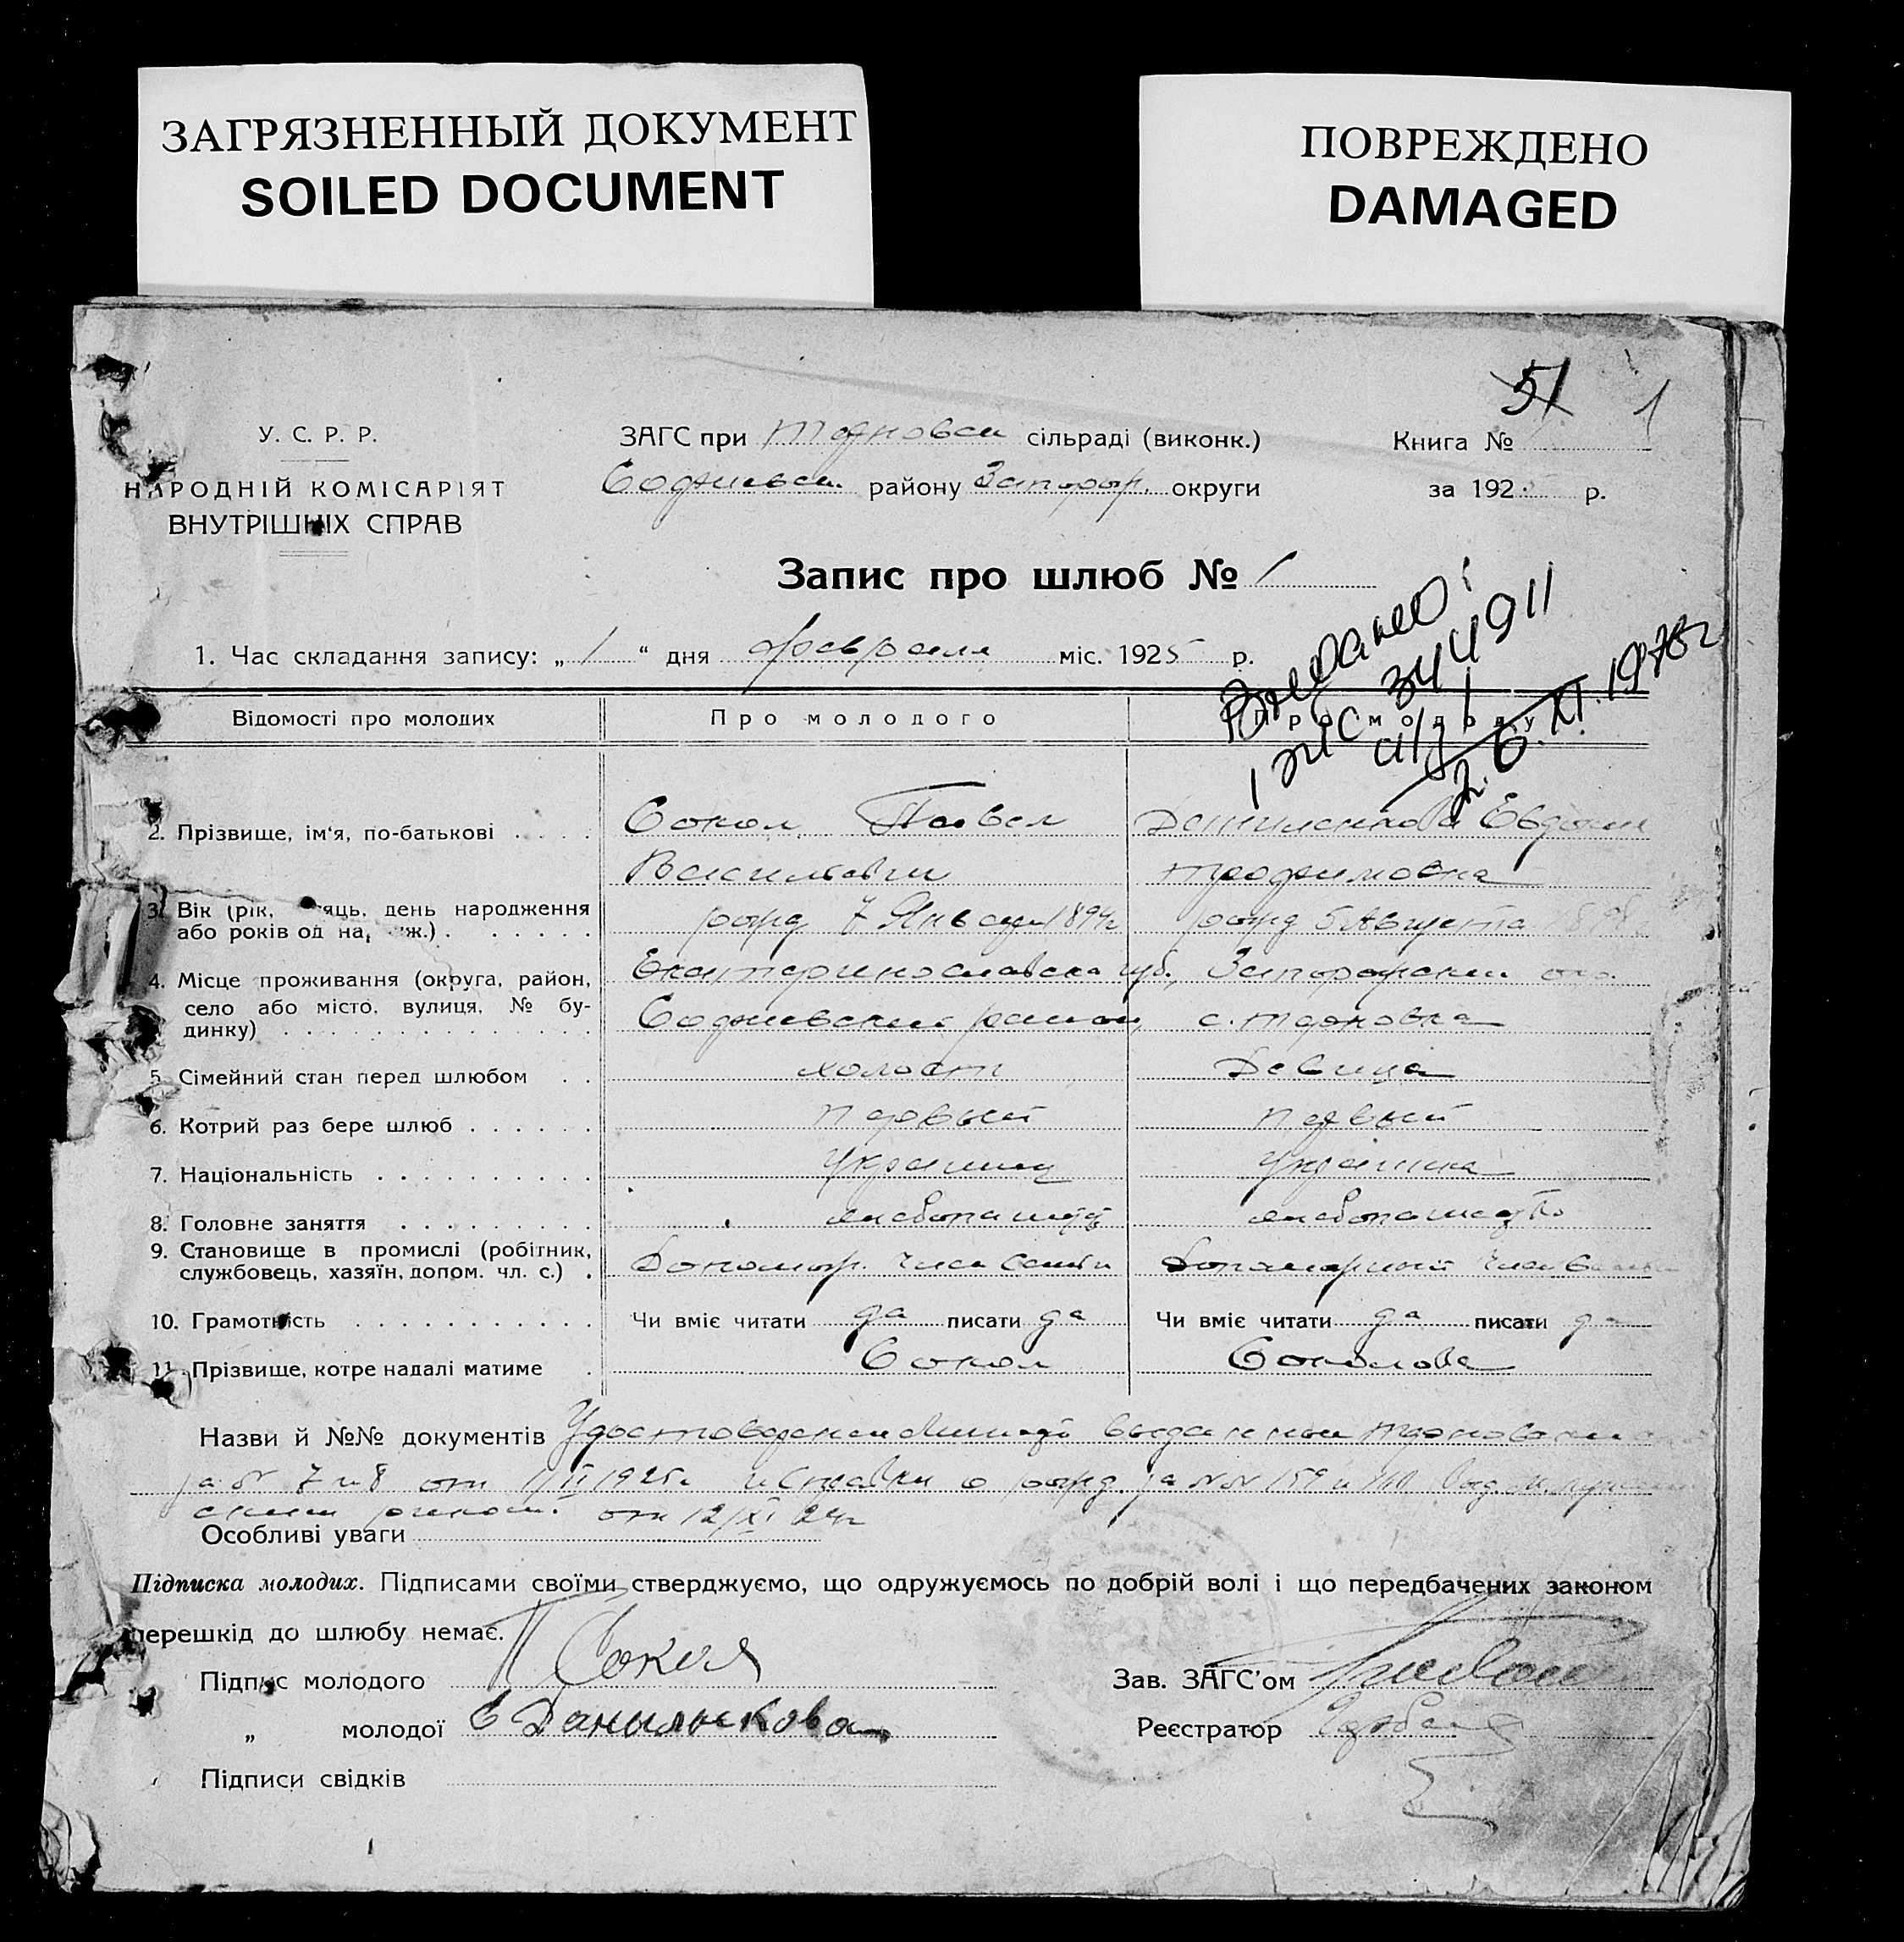 ЗАГРЯЗНЕННЫЙ ДОКУМЕНТ
SOILED DOCUMENT
ПОВРЕЖДЕНО
DAMAGED
51 1
У. С. Р. Р.
НАРОДНІЙ КОМІСАРІЯТ
ВНУТРІШНІХ СПРАВ
ЗАГС при сільраді (виконк.)
району округи
Книга №
за 192 р.
Запис про шлюб № 1
344911
XI. 1978г
1. Час складання запису: „ 1 “ дня февраля міс. 1925 р.
Відомості про молодих Про молодого Про молоду
2. Прізвище, ім‘я, по-батькові . . . . Сокол Павел Евдокия
Васильевич Трофимовна
3. Вік (рік, яць, день народження рожд 7 Января 1894г рожд 5 Августа
або років од на ж.) . . . . . .
4. Місце проживання (округа, район, Екатеринославска губ.,
село або місто, вулиця, № бу-
динку) . . . район, с.
5. Сімейний стан перед шлюбом . . холост Девица
6. Котрий раз бере шлюб . . . . . . первый первый
7. Національність . . . . . . . . . . Украинец Украинка
8. Головне заняття . . . . . . . . . хлебопашец
9. Становище в промислі (робітник,
службовець, хазяїн, допом. чл. с.) . член семьи член
10. Грамотність . . . . . . . . . . . Чи вміє читати да писати да Чи вміє читати да писати да
11. Прізвище, котре надалі матиме . Сокол Соколова
Назви й №№ документів
за № 7 и 8 от 1/II 1925г и Справки о рожд. за №№ 159 и 160
от 12/XI 24г
Особливі уваги
Підписка молодих. Підписами своїми стверджуємо, що одружуємось по добрій волі і що передбачених законом
перешкід до шлюбу немає.
Підпис молодого П Сокол
„ молодої Е Данылькова
Підписи свідків
Зав. ЗАГС’ом
Реєстратор